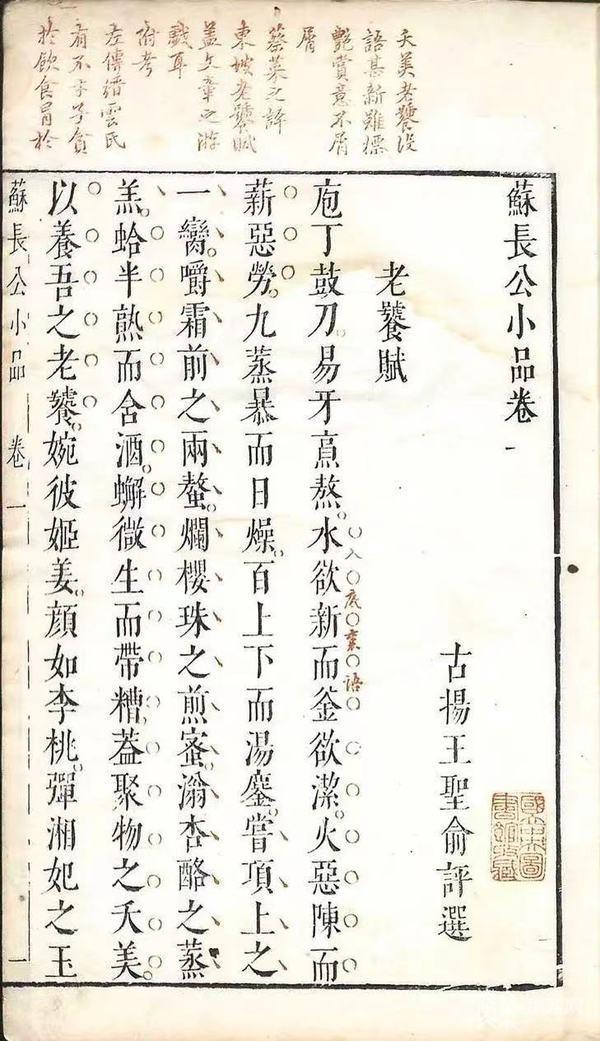 夭美老饕沒
語甚新難標
艷賞意不屑
屑
蔡菜之評
東坡老饕賦
蓋文章之游
戲耳
附考
左傳縉雲氏
有不才子貪
於飲食冒於
蘇長公小品卷一
古揚王聖俞評選
老饕賦
庖丁鼓刀。易牙亯熬。水欲新而釜欲潔。火惡陳而
入底裏語
薪惡勞。九蒸暴而日燥。百上下而湯鏖。嘗項上之
一臠。嚼霜前之兩螯。爛櫻珠之煎蜜。滃杏酪之蒸
羔。蛤半熟而含酒。蠏微生而帶糟。蓋聚物之夭美。
以養吾之老饕。婉彼姬姜。顏如李桃。彈湘妃之玉
蘇長公小品 卷一 一